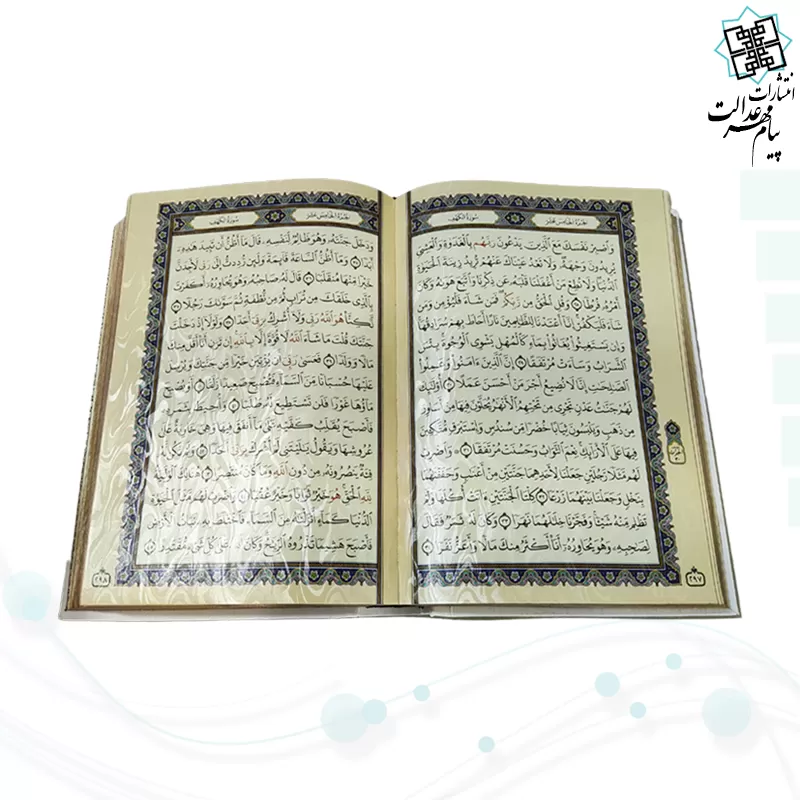 انتشارات
پیام مهر عدالت
الجزء الخامس عشر
سورة الكهف
وَاصْبِرْ نَفْسَكَ مَعَ الَّذِينَ يَدْعُونَ رَبَّهُم بِالْغَدَوٰةِ وَالْعَشِيِّ
يُرِيدُونَ وَجْهَهُۥ وَلَا تَعْدُ عَيْنَاكَ عَنْهُمْ تُرِيدُ زِينَةَ الْحَيَوٰةِ
الدُّنْيَا وَلَا تُطِعْ مَنْ أَغْفَلْنَا قَلْبَهُۥ عَن ذِكْرِنَا وَاتَّبَعَ هَوَىٰهُ وَكَانَ
أَمْرُهُۥ فُرُطًا ﴿٢٨﴾ وَقُلِ الْحَقُّ مِن رَّبِّكُمْ فَمَن شَآءَ فَلْيُؤْمِن وَمَن
شَآءَ فَلْيَكْفُرْ إِنَّآ أَعْتَدْنَا لِلظَّٰلِمِينَ نَارًا أَحَاطَ بِهِمْ سُرَادِقُهَا
وَإِن يَسْتَغِيثُوا۟ يُغَاثُوا۟ بِمَآءٍ كَالْمُهْلِ يَشْوِي الْوُجُوهَ بِئْسَ
الشَّرَابُ وَسَآءَتْ مُرْتَفَقًا ﴿٢٩﴾ إِنَّ الَّذِينَ ءَامَنُوا۟ وَعَمِلُوا۟
الصَّٰلِحَٰتِ إِنَّا لَا نُضِيعُ أَجْرَ مَنْ أَحْسَنَ عَمَلًا ﴿٣٠﴾ أُو۟لَٰٓئِكَ
لَهُمْ جَنَّٰتُ عَدْنٍ تَجْرِي مِن تَحْتِهِمُ الْأَنْهَٰرُ يُحَلَّوْنَ فِيهَا مِنْ أَسَاوِرَ
مِن ذَهَبٍ وَيَلْبَسُونَ ثِيَابًا خُضْرًا مِّن سُندُسٍ وَإِسْتَبْرَقٍ مُّتَّكِـِٔينَ
فِيهَا عَلَى الْأَرَآئِكِ نِعْمَ الثَّوَابُ وَحَسُنَتْ مُرْتَفَقًا ﴿٣١﴾ وَاضْرِبْ
لَهُم مَّثَلًا رَّجُلَيْنِ جَعَلْنَا لِأَحَدِهِمَا جَنَّتَيْنِ مِنْ أَعْنَٰبٍ وَحَفَفْنَٰهُمَا
بِنَخْلٍ وَجَعَلْنَا بَيْنَهُمَا زَرْعًا ﴿٣٢﴾ كِلْتَا الْجَنَّتَيْنِ ءَاتَتْ أُكُلَهَا وَلَمْ
تَظْلِم مِّنْهُ شَيْـًٔا وَفَجَّرْنَا خِلَٰلَهُمَا نَهَرًا ﴿٣٣﴾ وَكَانَ لَهُۥ ثَمَرٌ فَقَالَ
لِصَٰحِبِهِۦ وَهُوَ يُحَاوِرُهُۥٓ أَنَا۠ أَكْثَرُ مِنكَ مَالًا وَأَعَزُّ نَفَرًا ﴿٣٤﴾
٢٩٧
الجزء الخامس عشر
سورة الكهف
وَدَخَلَ جَنَّتَهُۥ وَهُوَ ظَالِمٌ لِّنَفْسِهِۦ قَالَ مَآ أَظُنُّ أَن تَبِيدَ هَٰذِهِۦٓ
أَبَدًا ﴿٣٥﴾ وَمَآ أَظُنُّ السَّاعَةَ قَآئِمَةً وَلَئِن رُّدِدتُّ إِلَىٰ رَبِّي لَأَجِدَنَّ
خَيْرًا مِّنْهَا مُنقَلَبًا ﴿٣٦﴾ قَالَ لَهُۥ صَاحِبُهُۥ وَهُوَ يُحَاوِرُهُۥٓ أَكَفَرْتَ
بِالَّذِي خَلَقَكَ مِن تُرَابٍ ثُمَّ مِن نُّطْفَةٍ ثُمَّ سَوَّىٰكَ رَجُلًا ﴿٣٧﴾
لَّٰكِنَّا۠ هُوَ اللَّهُ رَبِّي وَلَآ أُشْرِكُ بِرَبِّيٓ أَحَدًا ﴿٣٨﴾ وَلَوْلَآ إِذْ دَخَلْتَ
جَنَّتَكَ قُلْتَ مَا شَآءَ اللَّهُ لَا قُوَّةَ إِلَّا بِاللَّهِ إِن تَرَنِ أَنَا۠ أَقَلَّ مِنكَ
مَالًا وَوَلَدًا ﴿٣٩﴾ فَعَسَىٰ رَبِّيٓ أَن يُؤْتِيَنِ خَيْرًا مِّن جَنَّتِكَ وَيُرْسِلَ
عَلَيْهَا حُسْبَانًا مِّنَ السَّمَآءِ فَتُصْبِحَ صَعِيدًا زَلَقًا ﴿٤٠﴾ أَوْ يُصْبِحَ
مَآؤُهَا غَوْرًا فَلَن تَسْتَطِيعَ لَهُۥ طَلَبًا ﴿٤١﴾ وَأُحِيطَ بِثَمَرِهِۦ
فَأَصْبَحَ يُقَلِّبُ كَفَّيْهِ عَلَىٰ مَآ أَنفَقَ فِيهَا وَهِيَ خَاوِيَةٌ عَلَىٰ
عُرُوشِهَا وَيَقُولُ يَٰلَيْتَنِي لَمْ أُشْرِكْ بِرَبِّيٓ أَحَدًا ﴿٤٢﴾ وَلَمْ تَكُن لَّهُۥ
فِئَةٌ يَنصُرُونَهُۥ مِن دُونِ اللَّهِ وَمَا كَانَ مُنتَصِرًا ﴿٤٣﴾ هُنَالِكَ الْوَلَٰيَةُ
لِلَّهِ الْحَقِّ هُوَ خَيْرٌ ثَوَابًا وَخَيْرٌ عُقْبًا ﴿٤٤﴾ وَاضْرِبْ لَهُم مَّثَلَ الْحَيَوٰةِ
الدُّنْيَا كَمَآءٍ أَنزَلْنَٰهُ مِنَ السَّمَآءِ فَاخْتَلَطَ بِهِۦ نَبَاتُ الْأَرْضِ
فَأَصْبَحَ هَشِيمًا تَذْرُوهُ الرِّيَٰحُ وَكَانَ اللَّهُ عَلَىٰ كُلِّ شَيْءٍ مُّقْتَدِرًا ﴿٤٥﴾
٢٩٨